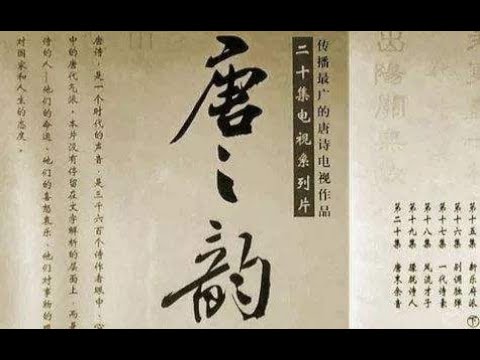 第十五集 新乐府派
第十六集 别调独弹
第十七集 一代诗豪
第十八集 风流才子
第十九集 朦胧诗人
第二十集 唐末余音
下
出陽關無故
传播最广的唐诗电视作品
二十集电视系列片
唐之韵
唐诗，是一个时代的声音，是三千六百个诗作者眼中、心
中的唐代气派。本片没有停留在文字解析的层面上，而
诗的人——他们的命运、他们的喜怒哀乐、他们对事物的
对国家和人生的态度。